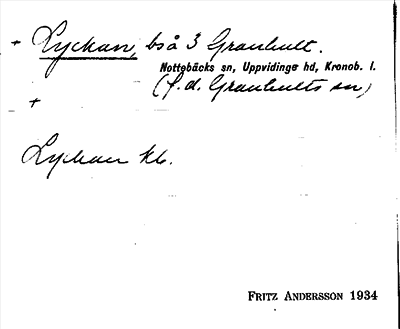 + Lyckan, bs å 3 Granhult.
Nottebäcks sn, Uppvidinge hd, Kronob. l.
(f.d. Granhults sn)
+
Lyckan kb.
FRITZ ANDERSSON 1934